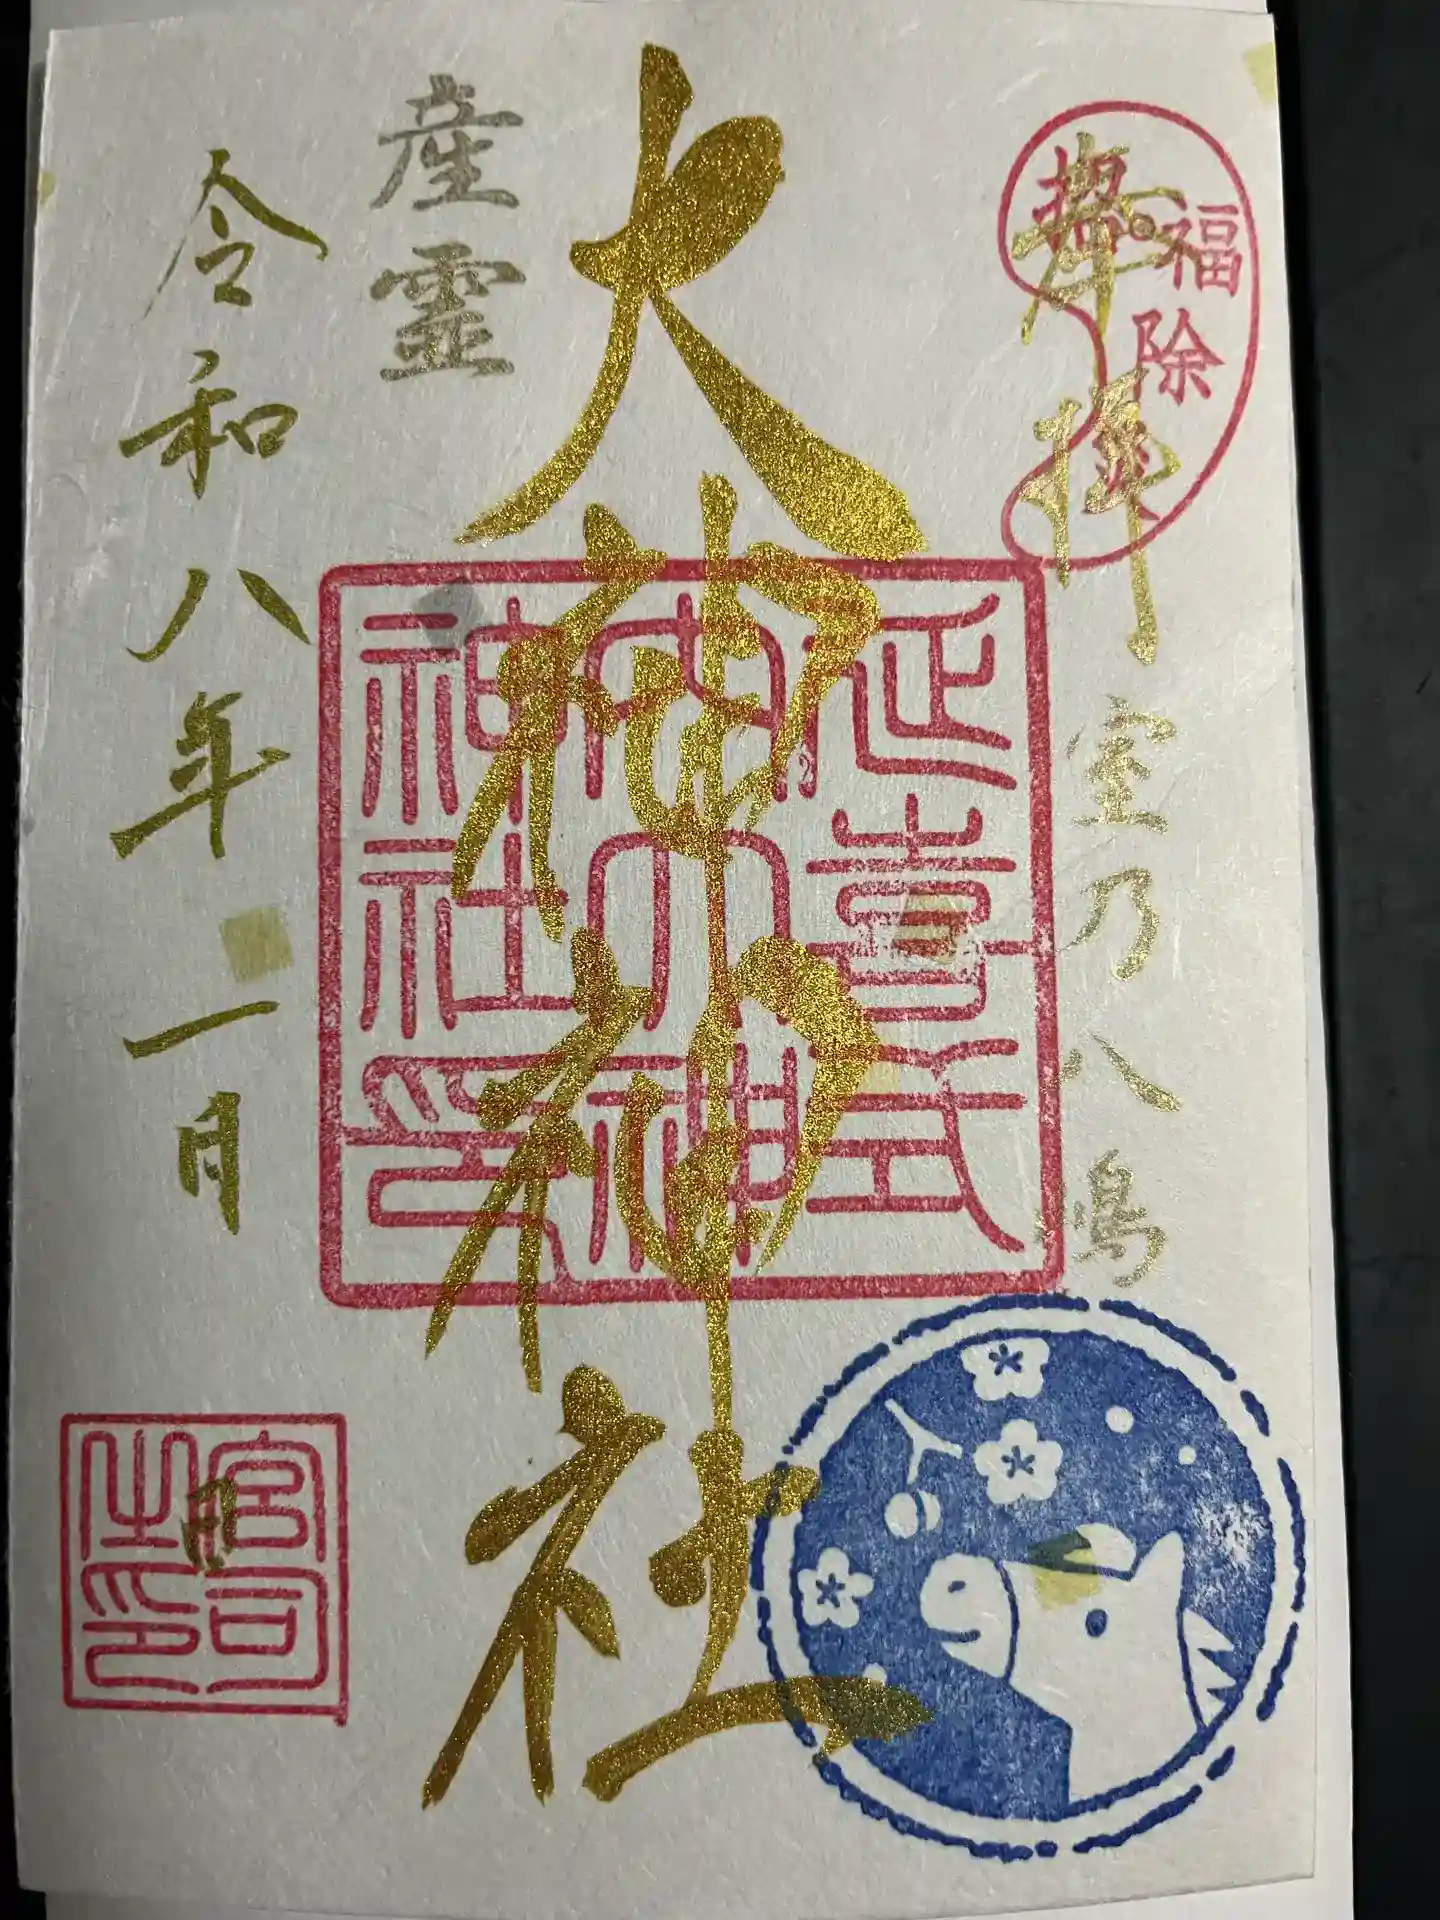 奉拝
招福除災
室乃八嶋
大神神社
延喜式
内大神
神社印
産霊
令和八年一月 日
宮司
之印